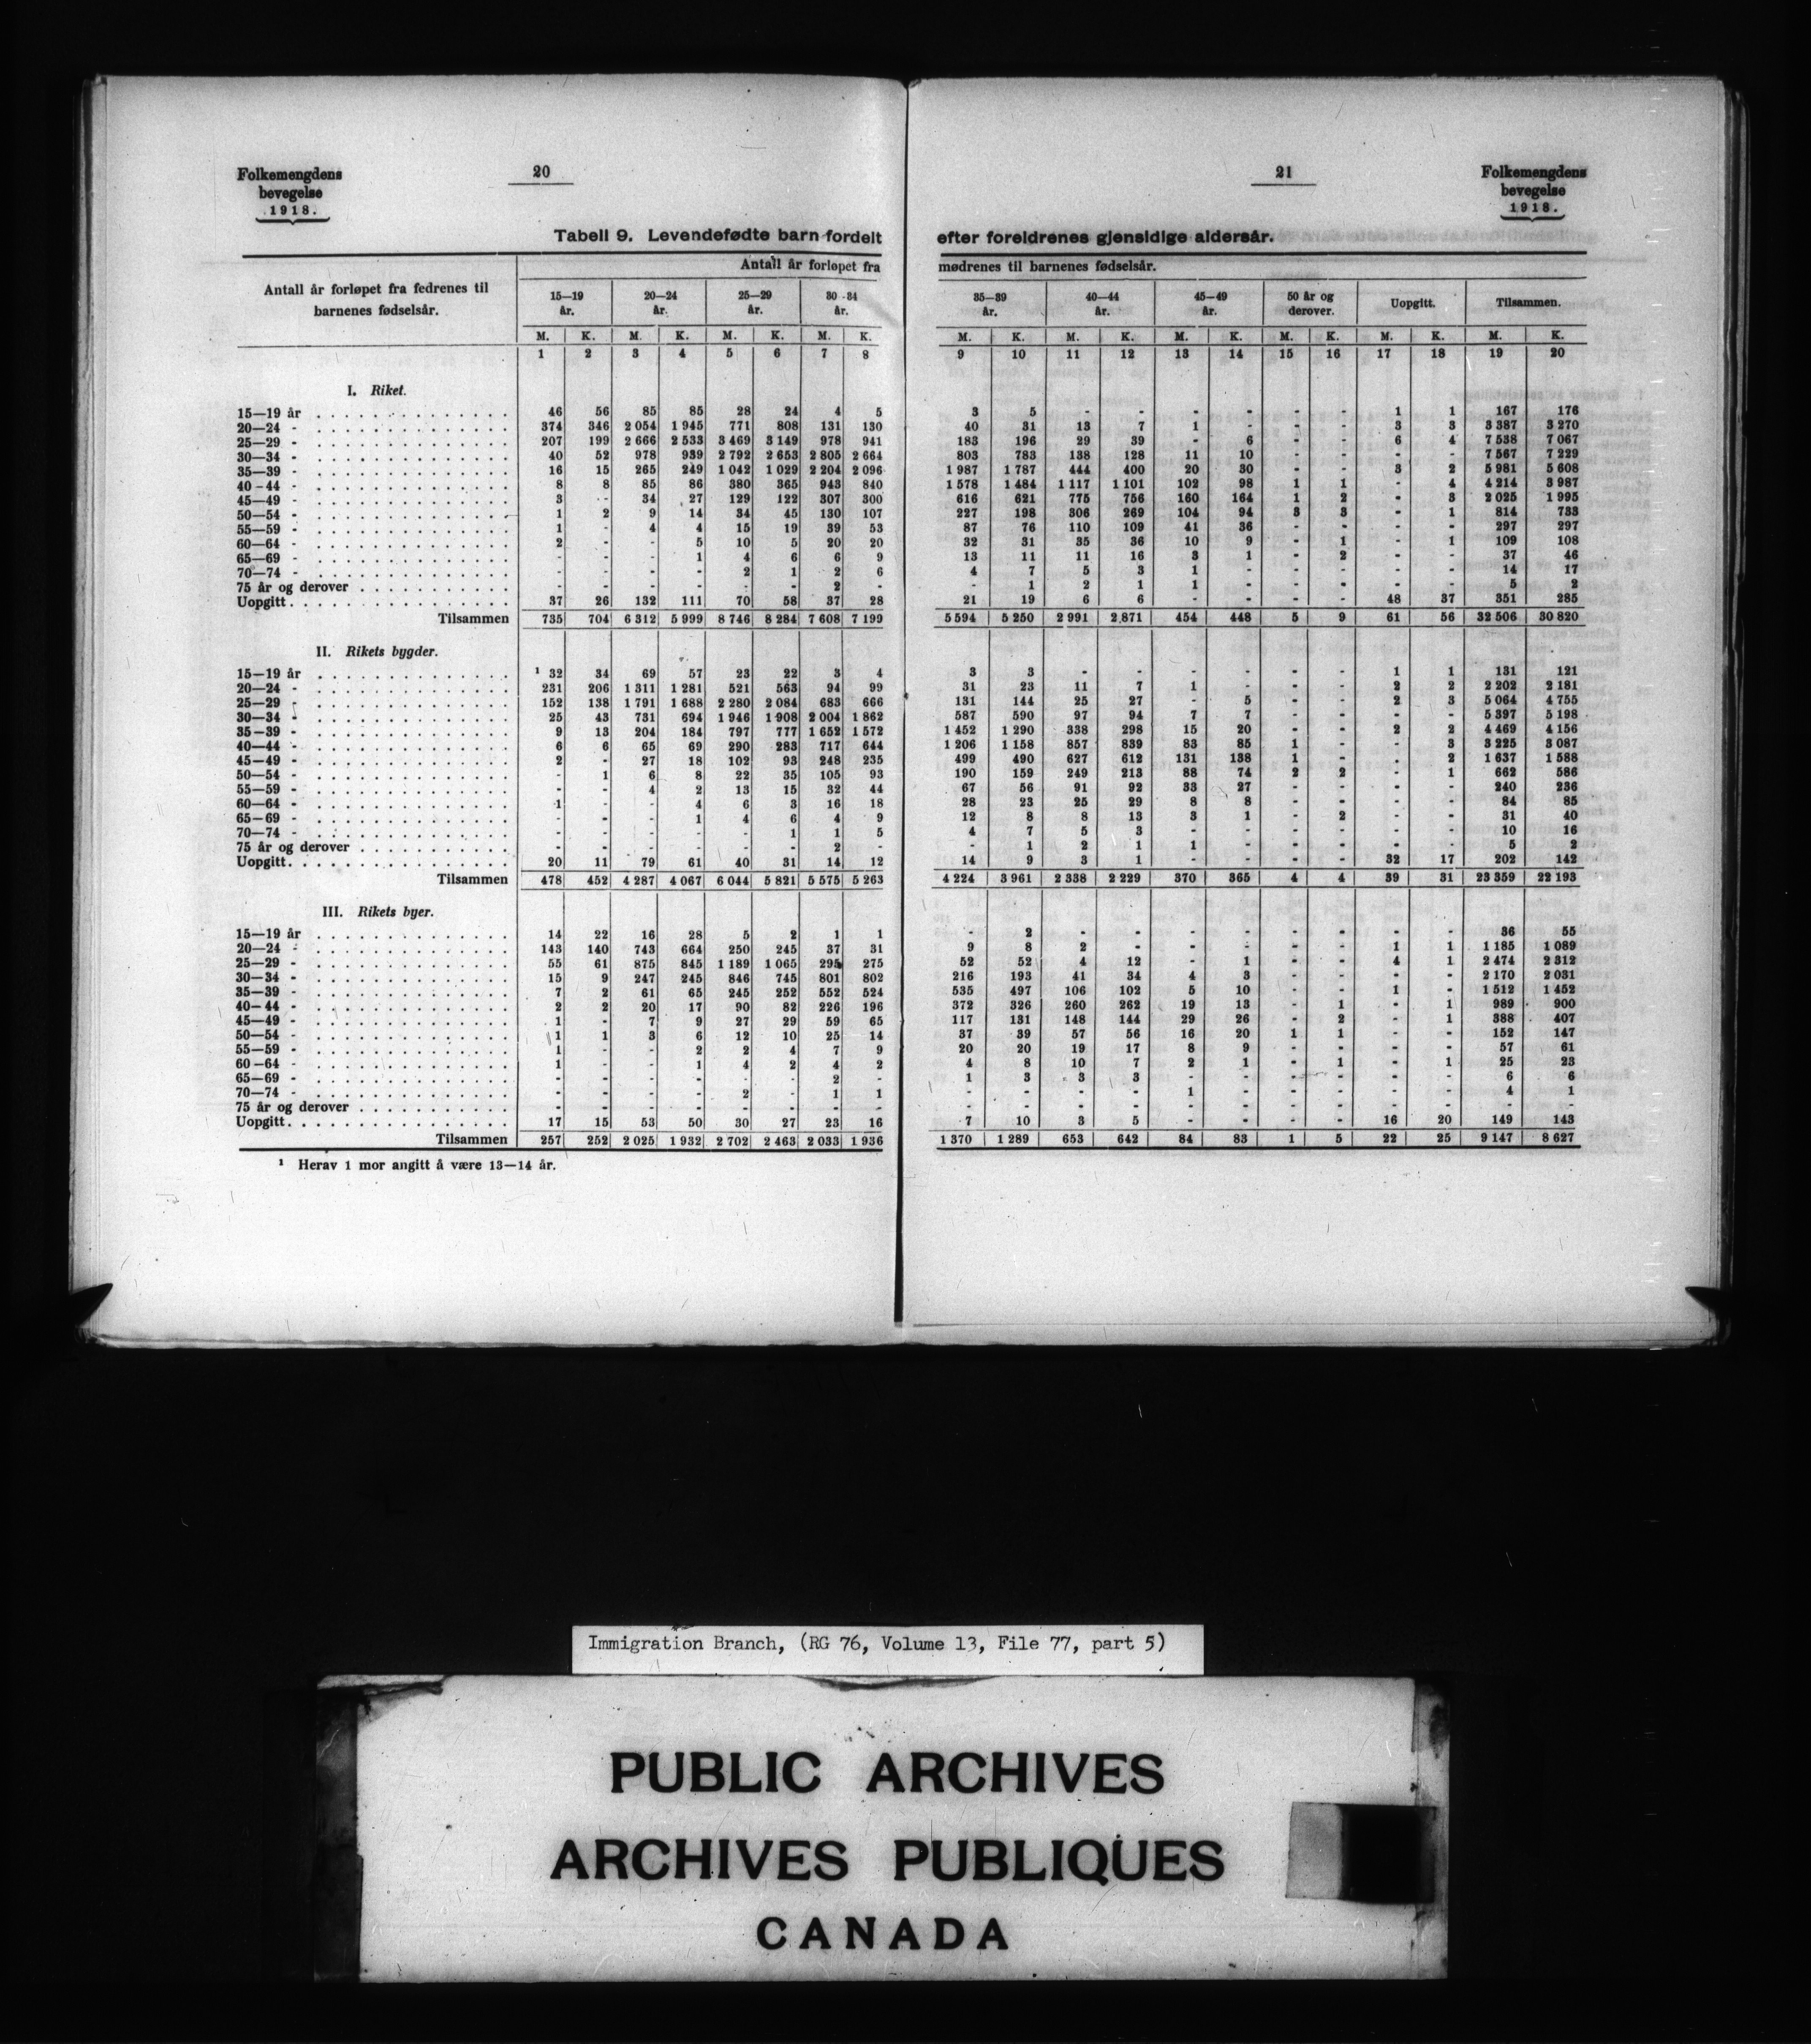 Folkemengdens
bevegelse
1918.
20
Tabell 9. Levendefødte barn fordelt
Antall år forløpet fra fedrenes til
barnenes fødselsår.
Antall år forløpet fra
15—19 år. 20—24 år. 25—29 år. 30-34 år.
M. K. M. K. M. K. M. K.
1 2 3 4 5 6 7 8
I. Riket.
15—19 år 46 56 85 85 28 24 4 5
20—24 - 374 346 2 054 1 945 771 808 131 130
25—29 - 207 199 2 666 2 533 3 469 3 149 978 941
30—34 - 40 52 978 939 2 792 2 653 2 805 2 664
35—39 - 16 15 265 249 1 042 1 029 2 204 2 096
40-44 - 8 8 85 86 380 365 943 840
45—49 - 3 - 34 27 129 122 307 300
50—54 - 1 2 9 14 34 45 130 107
55—59 - 1 - 4 4 15 19 39 53
60—64 - 2 - - 5 10 5 20 20
65—69 - - - - 1 4 6 6 9
70—74 - - - - - 2 1 2 6
75 år og derover - - - - - - 2 -
Uopgitt 37 26 132 111 70 58 37 28
Tilsammen 735 704 6 312 5 999 8 746 8 284 7 608 7 199
II. Rikets bygder.
15—19 år ¹ 32 34 69 57 23 22 3 4
20—24 - 231 206 1 311 1 281 521 563 94 99
25—29 - 152 138 1 791 1 688 2 280 2 084 683 666
30—34 - 25 43 731 694 1 946 1 908 2 004 1 862
35—39 - 9 13 204 184 797 777 1 652 1 572
40—44 - 6 6 65 69 290 283 717 644
45—49 - 2 - 27 18 102 93 248 235
50—54 - - 1 6 8 22 35 105 93
55—59 - - - 4 2 13 15 32 44
60—64 - 1 - - 4 6 3 16 18
65—69 - - - - 1 4 6 4 9
70—74 - - - - - - 1 1 5
75 år og derover - - - - - - 2 -
Uopgitt 20 11 79 61 40 31 14 12
Tilsammen 478 452 4 287 4 067 6 044 5 821 5 575 5 263
III. Rikets byer.
15—19 år 14 22 16 28 5 2 1 1
20—24 - 143 140 743 664 250 245 37 31
25—29 - 55 61 875 845 1 189 1 065 295 275
30—34 - 15 9 247 245 846 745 801 802
35—39 - 7 2 61 65 245 252 552 524
40—44 - 2 2 20 17 90 82 226 196
45—49 - 1 - 7 9 27 29 59 65
50—54 - 1 1 3 6 12 10 25 14
55—59 - 1 - - 2 2 4 7 9
60-64 - 1 - - 1 4 2 4 2
65—69 - - - - - - - 2 -
70—74 - - - - - 2 - 1 1
75 år og derover - - - - - - - -
Uopgitt 17 15 53 50 30 27 23 16
Tilsammen 257 252 2 025 1 932 2 702 2 463 2 033 1 936
¹ Herav 1 mor angitt å være 13—14 år.
21
Folkemengdens
bevegelse
1918.
efter foreldrenes gjensidige aldersår.
mødrenes til barnenes fødselsår.
35—39 år. 40—44 år. 45—49 år. 50 år og derover. Uopgitt. Tilsammen.
M. K. M. K. M. K. M. K. M. K. M. K.
9 10 11 12 13 14 15 16 17 18 19 20
3 5 - - - - - - 1 1 167 176
40 31 13 7 1 - - - 3 3 3 387 3 270
183 196 29 39 - 6 - - 6 4 7 538 7 067
803 783 138 128 11 10 - - - - 7 567 7 229
1 987 1 787 444 400 20 30 - - 3 2 5 981 5 608
1 578 1 484 1 117 1 101 102 98 1 1 - 4 4 214 3 987
616 621 775 756 160 164 1 2 - 3 2 025 1 995
227 198 306 269 104 94 3 3 - 1 814 733
87 76 110 109 41 36 - - - - 297 297
32 31 35 36 10 9 - 1 - 1 109 108
13 11 11 16 3 1 - 2 - - 37 46
4 7 5 3 1 - - - - - 14 17
- 1 2 1 1 - - - - - 5 2
21 19 6 6 - - - - 48 37 351 285
5 594 5 250 2 991 2 871 454 448 5 9 61 56 32 506 30 820
3 3 - - - - - - 1 1 131 121
31 23 11 7 1 - - - 2 2 2 202 2 181
131 144 25 27 - 5 - - 2 3 5 064 4 755
587 590 97 94 7 7 - - - - 5 397 5 198
1 452 1 290 338 298 15 20 - - 2 2 4 469 4 156
1 206 1 158 857 839 83 85 1 - - 3 3 225 3 087
499 490 627 612 131 138 1 - - 2 1 637 1 588
190 159 249 213 88 74 2 2 - 1 662 586
67 56 91 92 33 27 - - - - 240 236
28 23 25 29 8 8 - - - - 84 85
12 8 8 13 3 1 - 2 - - 31 40
4 7 5 3 - - - - - - 10 16
- 1 2 1 1 - - - - - 5 2
14 9 3 1 - - - - 32 17 202 142
4 224 3 961 2 338 2 229 370 365 4 4 39 31 23 359 22 193
- 2 - - - - - - - - 36 55
9 8 2 - - - - - 1 1 1 185 1 089
52 52 4 12 - 1 - - 4 1 2 474 2 312
216 193 41 34 4 3 - - - - 2 170 2 031
535 497 106 102 5 10 - - 1 - 1 512 1 452
372 326 260 262 19 13 - 1 - 1 989 900
117 131 148 144 29 26 - 2 - 1 388 407
37 39 57 56 16 20 1 1 - - 152 147
20 20 19 17 8 9 - - - - 57 61
4 8 10 7 2 1 - 1 - 1 25 23
1 3 3 3 - - - - - - 6 6
- - - - 1 - - - - - 4 1
- - - - - - - - - - - -
7 10 3 5 - - - - 16 20 149 143
1 370 1 289 653 642 84 83 1 5 22 25 9 147 8 627
Immigration Branch, (RG 76, Volume 13, File 77, part 5)
PUBLIC ARCHIVES
ARCHIVES PUBLIQUES
CANADA